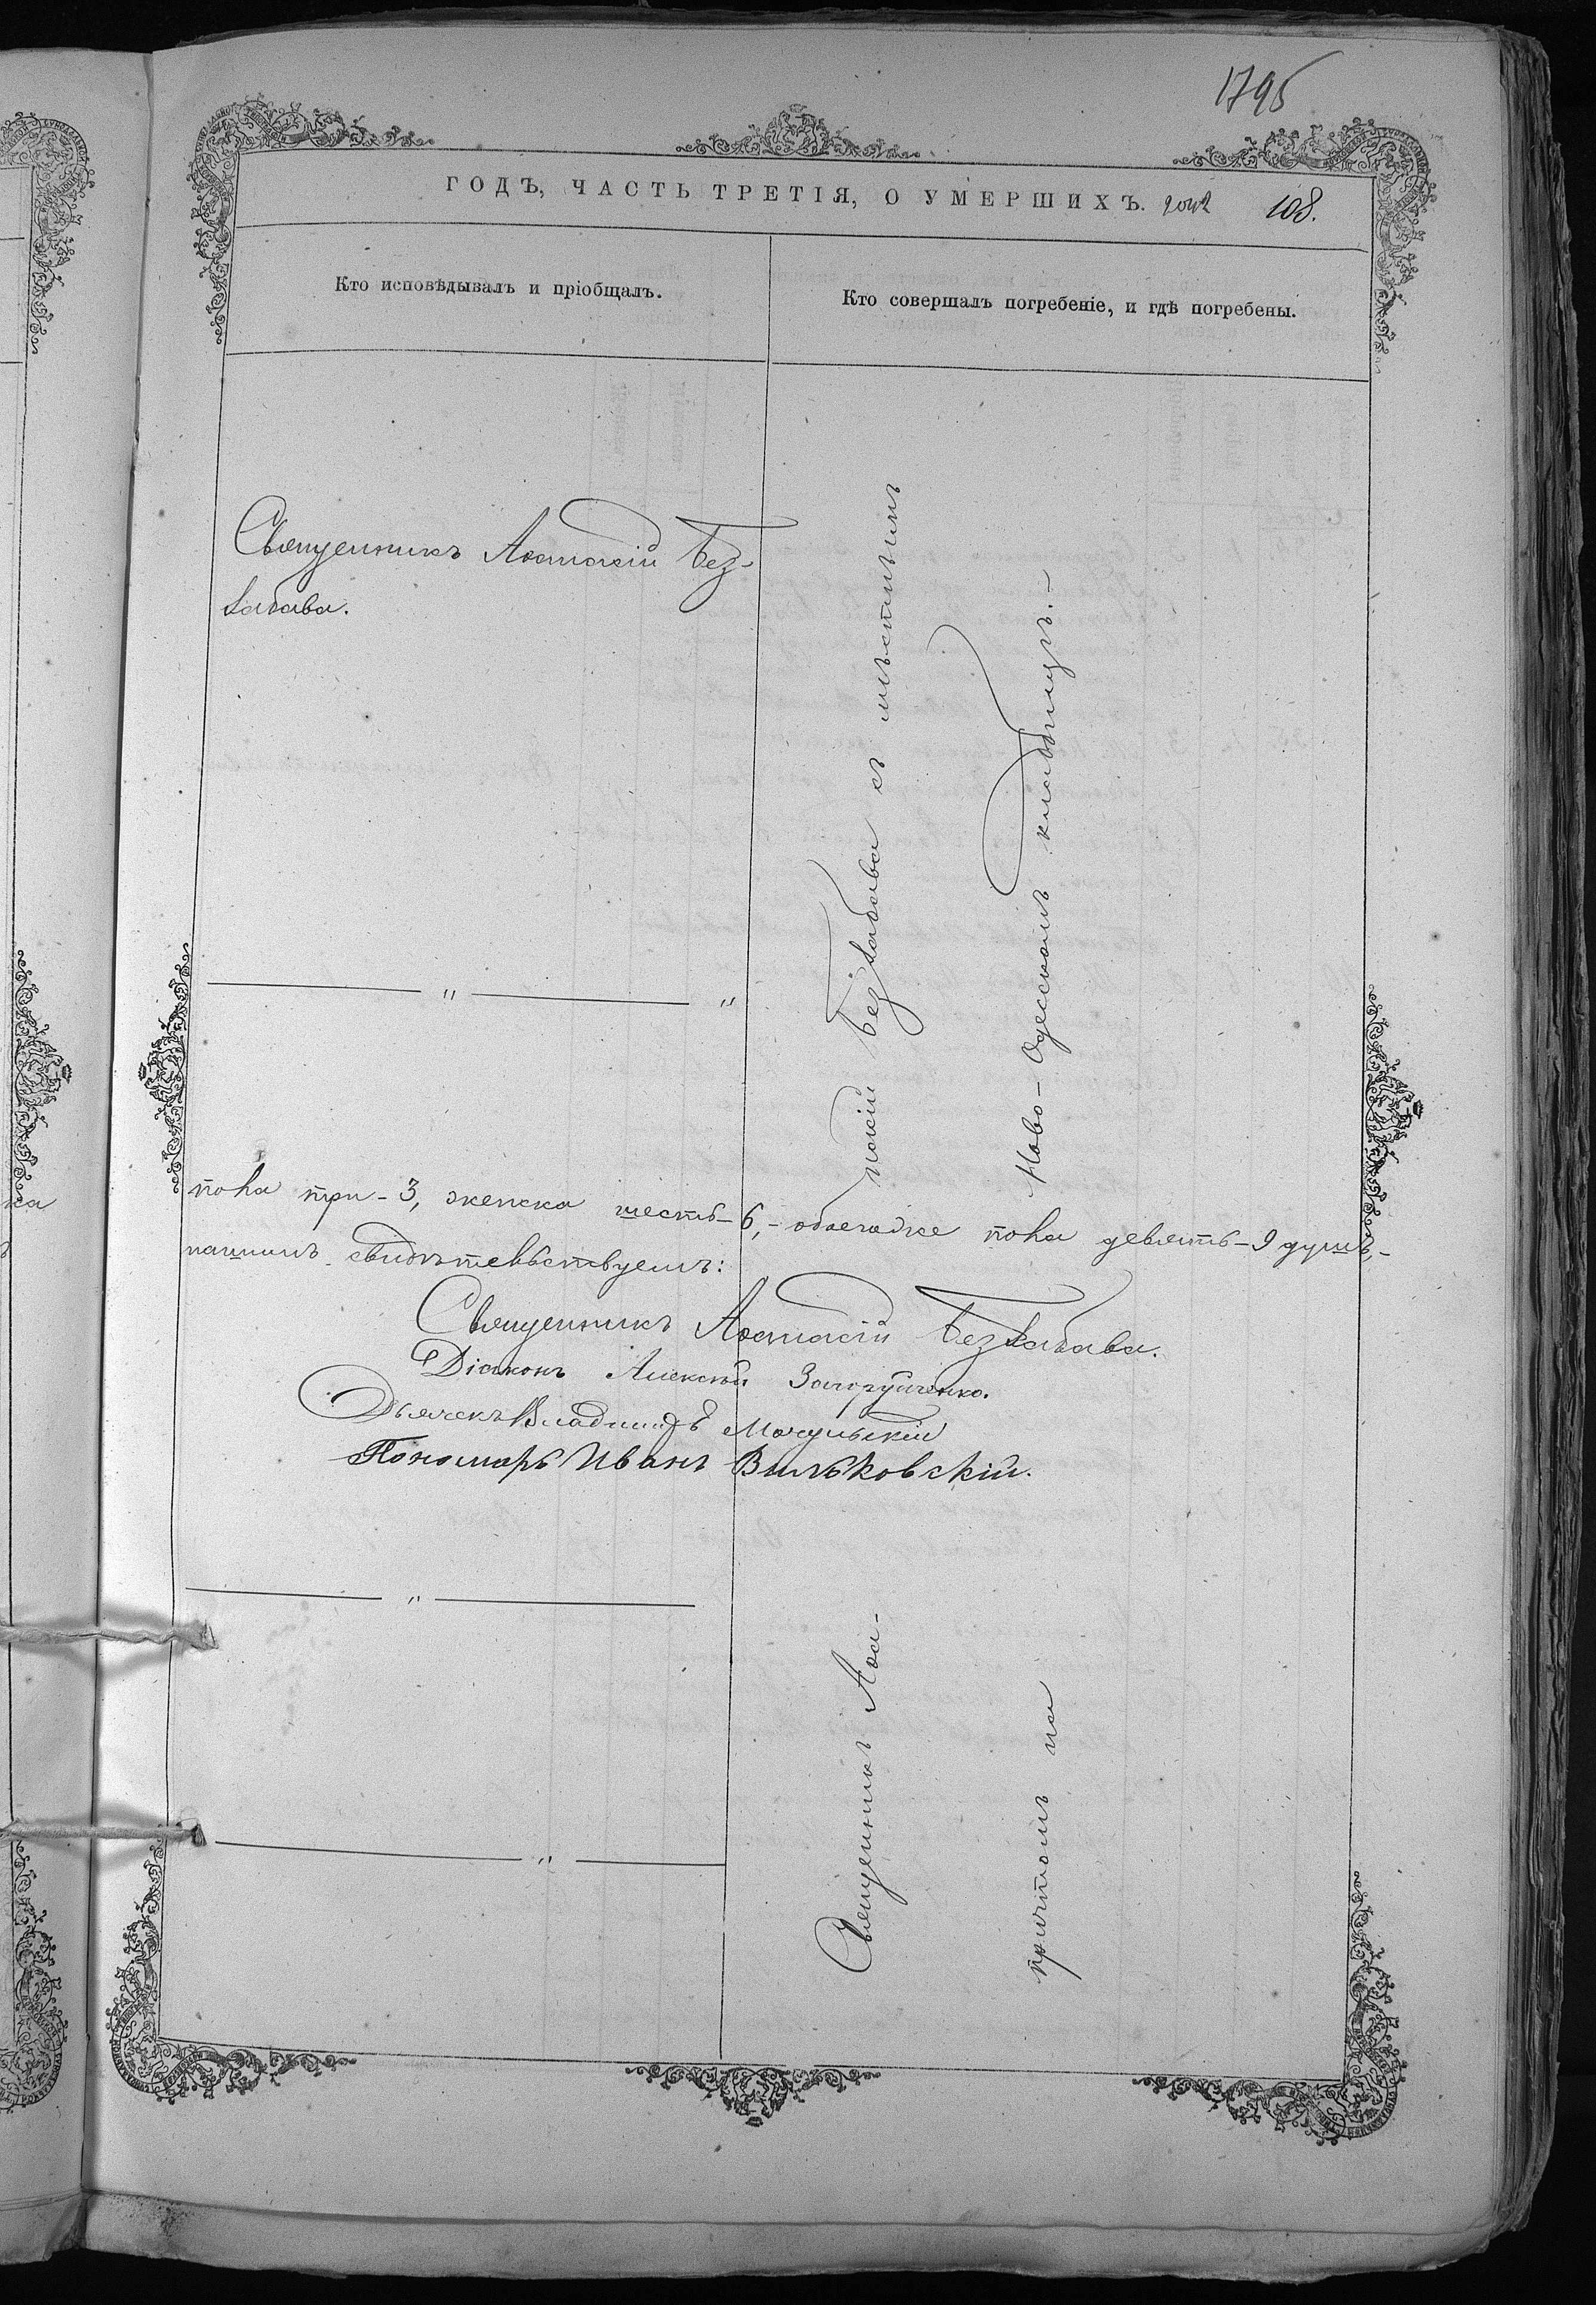 1795
ГОДЪ, ЧАСТЬ ТРЕТІЯ, О УМЕРШИХЪ. 108.
Кто исповѣдывалъ и пріобщалъ.
Кто совершалъ погребеніе, и гдѣ погребены.
Священникъ Аѳанасій Без-
забава.
Священникъ Аѳа-
насій Беззабава съ мѣстнымъ
причтомъ на
Ново-Одесскомъ кладбищѣ.-
пола три-3, женска шесть-6,- обоегоже пола девять-9 душъ,-
свидѣтельствуемъ:
Священникъ Аѳанасій Беззабава.
Діаконъ Алексѣй Загоруйченко.
Дьячекъ Владиміръ Мочульскій
Пономарь Иванъ Вильковскій.